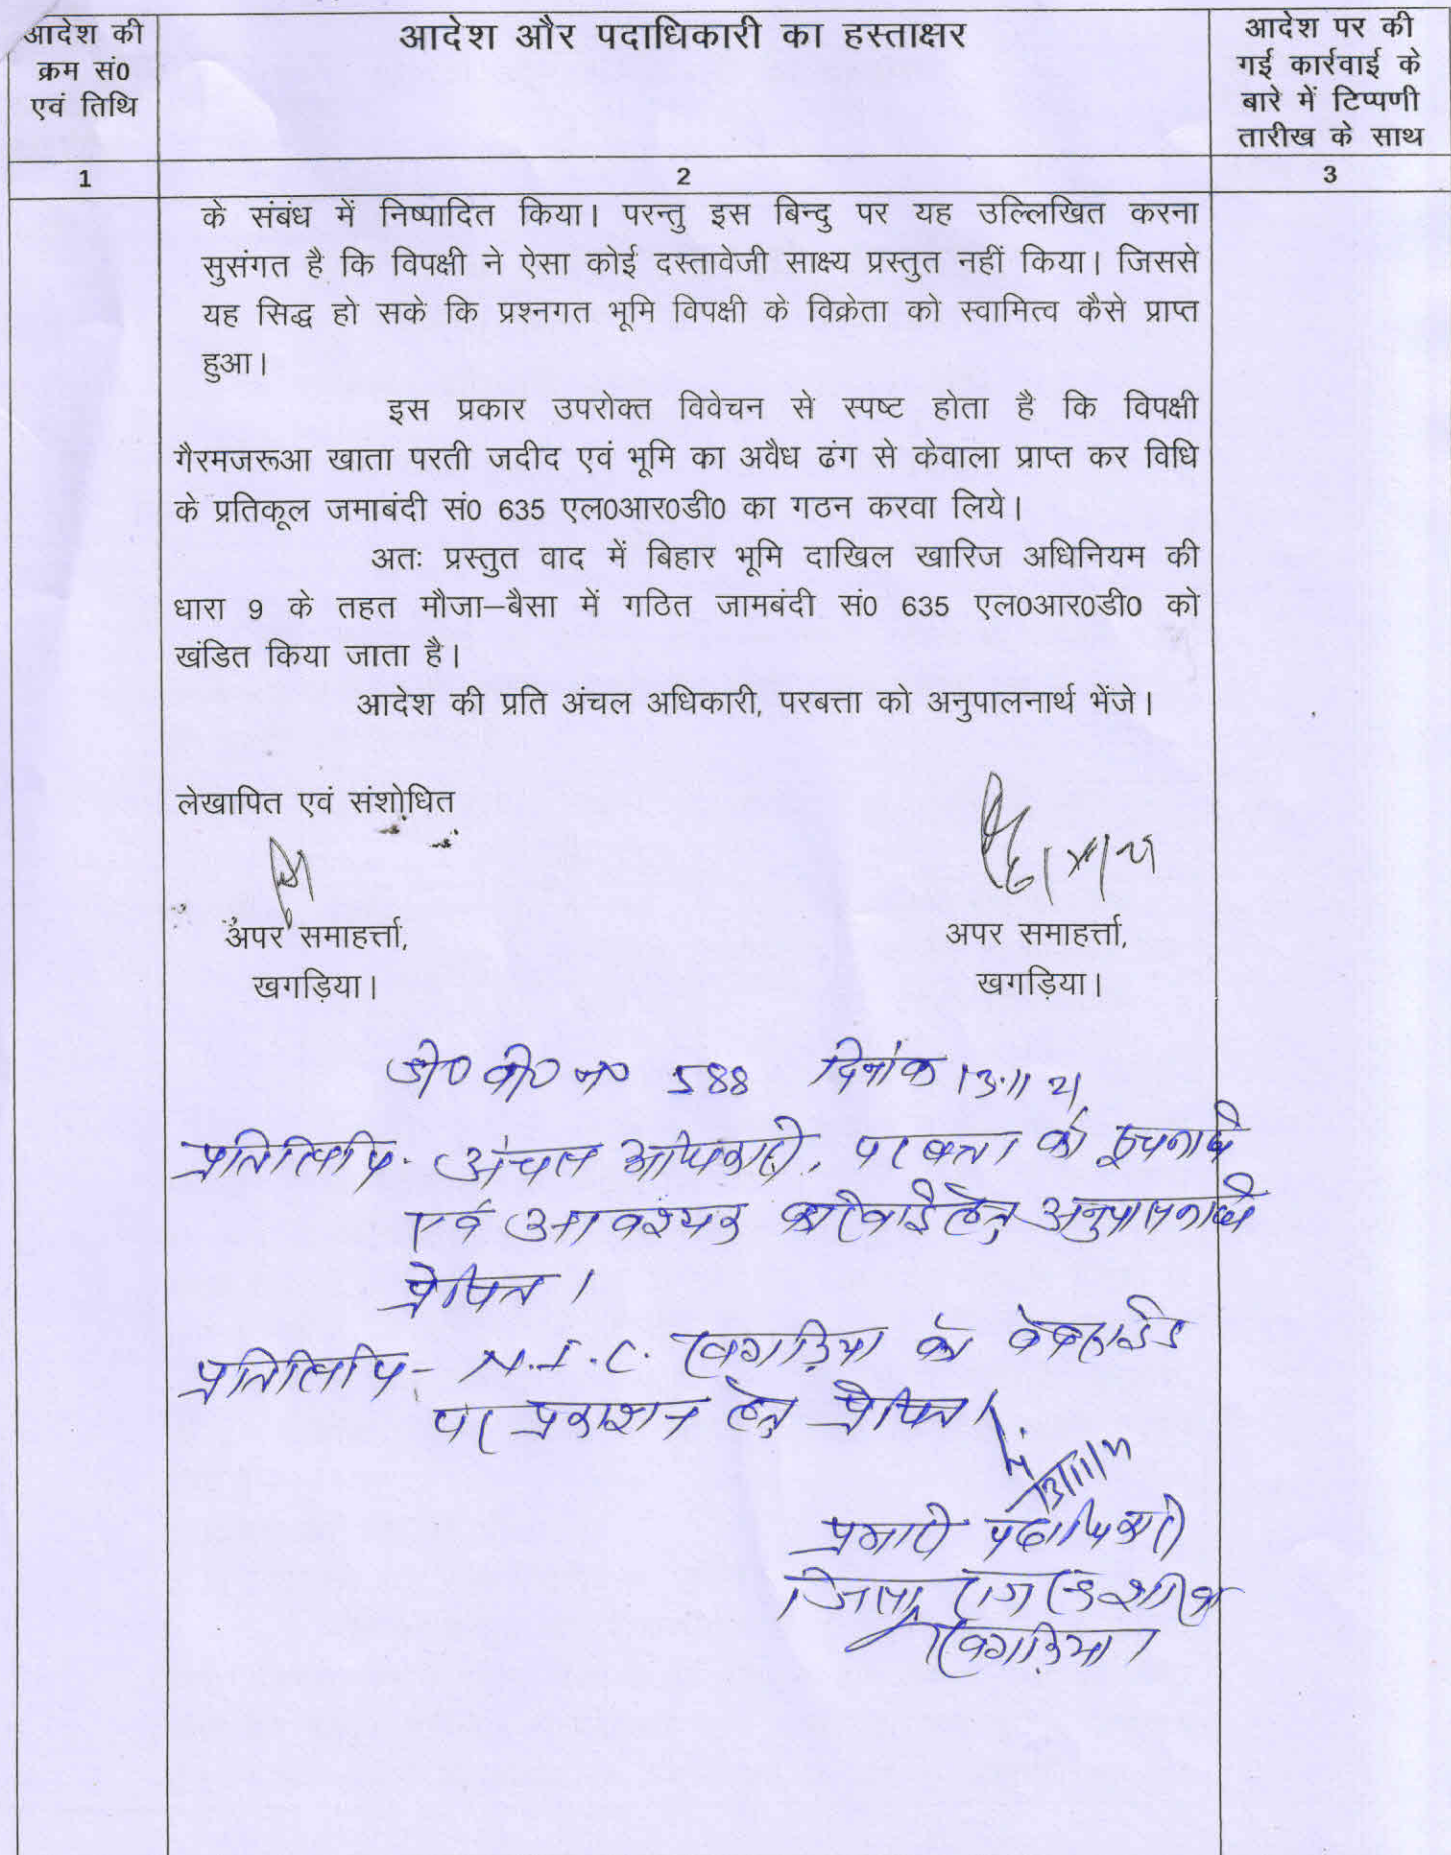 आदेश की
क्रम सं0
एवं तिथि
आदेश और पदाधिकारी का हस्ताक्षर
आदेश पर की
गई कार्रवाई के
बारे में टिप्पणी
तारीख के साथ
1
2
3
के संबंध में निष्पादित किया। परन्तु इस बिन्दु पर यह उल्लिखित करना
सुसंगत है कि विपक्षी ने ऐसा कोई दस्तावेजी साक्ष्य प्रस्तुत नहीं किया। जिससे
यह सिद्ध हो सके कि प्रश्नगत भूमि विपक्षी के विक्रेता को स्वामित्व कैसे प्राप्त
हुआ।
इस प्रकार उपरोक्त विवेचन से स्पष्ट होता है कि विपक्षी
गैरमजरूआ खाता परती जदीद एवं भूमि का अवैध ढंग से केवाला प्राप्त कर विधि
के प्रतिकूल जमाबंदी सं0 635 एल0आर0डी0 का गठन करवा लिये।
अतः प्रस्तुत वाद में बिहार भूमि दाखिल खारिज अधिनियम की
धारा 9 के तहत मौजा–बैसा में गठित जामबंदी सं0 635 एल0आर0डी0 को
खंडित किया जाता है।
आदेश की प्रति अंचल अधिकारी, परबत्ता को अनुपालनार्थ भेंजे।
लेखापित एवं संशोधित
अपर समाहर्त्ता,
खगड़िया।
अपर समाहर्त्ता,
खगड़िया।
डी0 बी0 न0 588 दिनांक 13.11 21
प्रतिलिपि- अंचल अधिकारी, परबत्ता को सूचनार्थ
एवं आवश्यक कार्रवाई हेतु अनुपालनार्थ
प्रेषित।
प्रतिलिपि- N.I.C. खगड़िया को वेबसाईट
पर प्रकाशन हेतु प्रेषित।
प्रभारी पदाधिकारी
जिला राजस्व शाखा
खगड़िया।